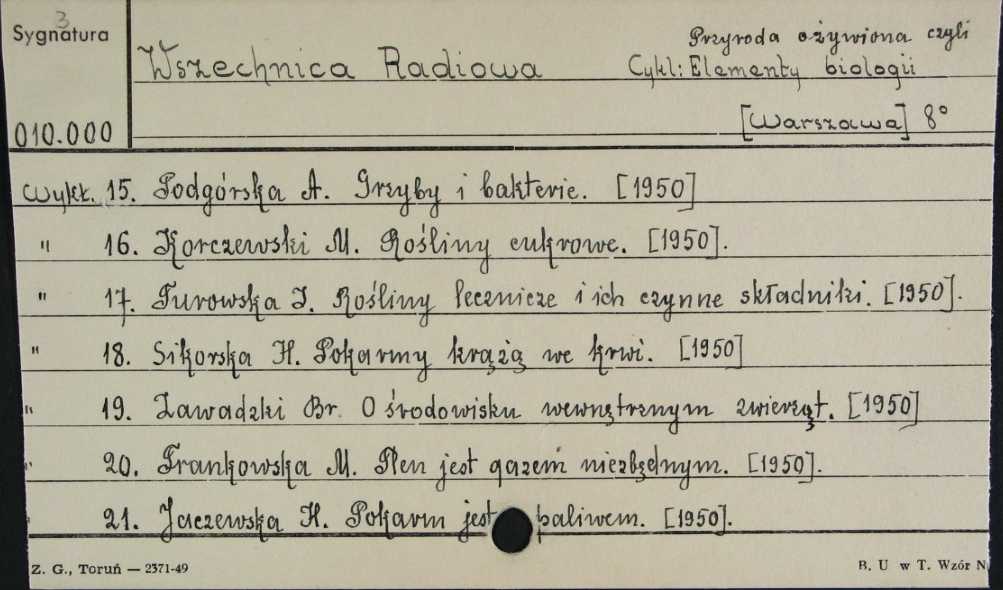 3
Sygnatura
Przyroda ożywiona czyli
Wszechnica Radiowa Cykl: Elementy biologii
010.000
[Warszawa] 8°
Wykł. 15. Podgórska A. Grzyby i bakterie. [1950]
" 16. Korczewski M. Rośliny cukrowe. [1950].
" 17. Turowska I. Rośliny lecznicze i ich czynne składniki. [1950].
" 18. Sikorska H. Pokarmy krążą we krwi. [1950]
" 19. Zawadzki Br. O środowisku wewnętrznym zwierząt. [1950]
" 20. Frankowska M. Tlen jest gazem niezbędnym. [1950].
" 21. Jaczewska H. Pokarm jest paliwem. [1950].
Z. G., Toruń — 2371-49
B. U w T. Wzór N